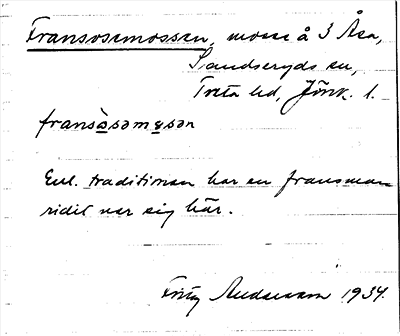 Fransosamossen, mosse å 3 Åsa,
Sandseryds sn,
Tveta hd, Jönk. l.
fransòsəmɷsən
Enl. traditionen har en fransman
ridit ner sig här.
Fritz Andersson 1934.